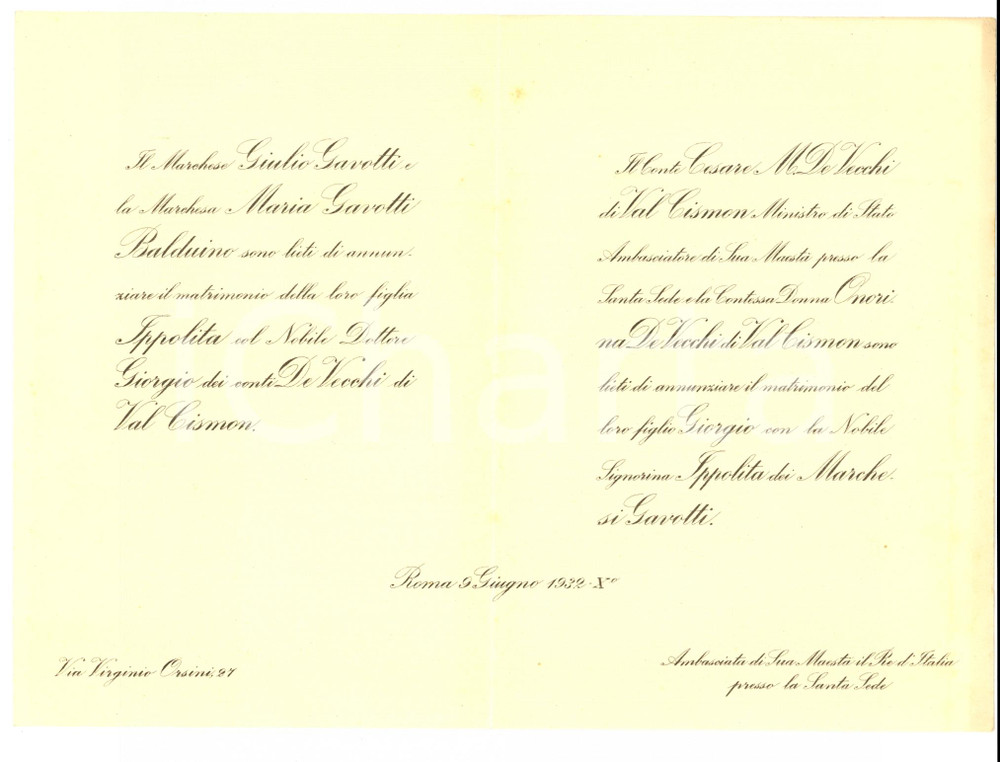 Il Marchese Giulio Gavotti e
la Marchesa Maria Gavotti
Balduino sono lieti di annun-
ziare il matrimonio della loro figlia
Ippolita col Nobile Dottore
Giorgio dei conti De Vecchi di
Val Cismon.
Il Conte Cesare M. De Vecchi
di Val Cismon Ministro di Stato
Ambasciatore di Sua Maestà presso la
Santa Sede e la Contessa Donna Onori-
na De Vecchi di Val Cismon sono
lieti di annunziare il matrimonio del
loro figlio Giorgio con la Nobile
Signorina Ippolita dei Marche-
si Gavotti.
Roma 9 Giugno 1932-Xº
Via Virginio Orsini, 27
Ambasciata di Sua Maestà il Re d'Italia
presso la Santa Sede
iCharta